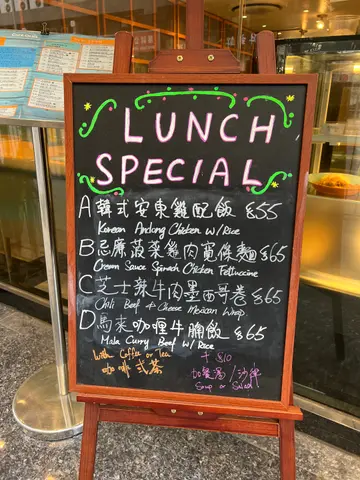 LUNCH
SPECIAL
A韓式安東雞配飯 $55
Korean Andong Chicken w/Rice
B忌廉菠菜雞肉寬條麵$65
Cream Sauce Spinach Chicken Fettuccine
C芝士辣牛肉墨西哥卷$65
Chili Beef & Cheese Mexican Wrap
D馬來咖喱牛腩飯 $65
Mala Curry Beef w/Rice
With Coffee or Tea
咖啡 或 茶
+ $10
加餐湯/沙律
Soup or Salad